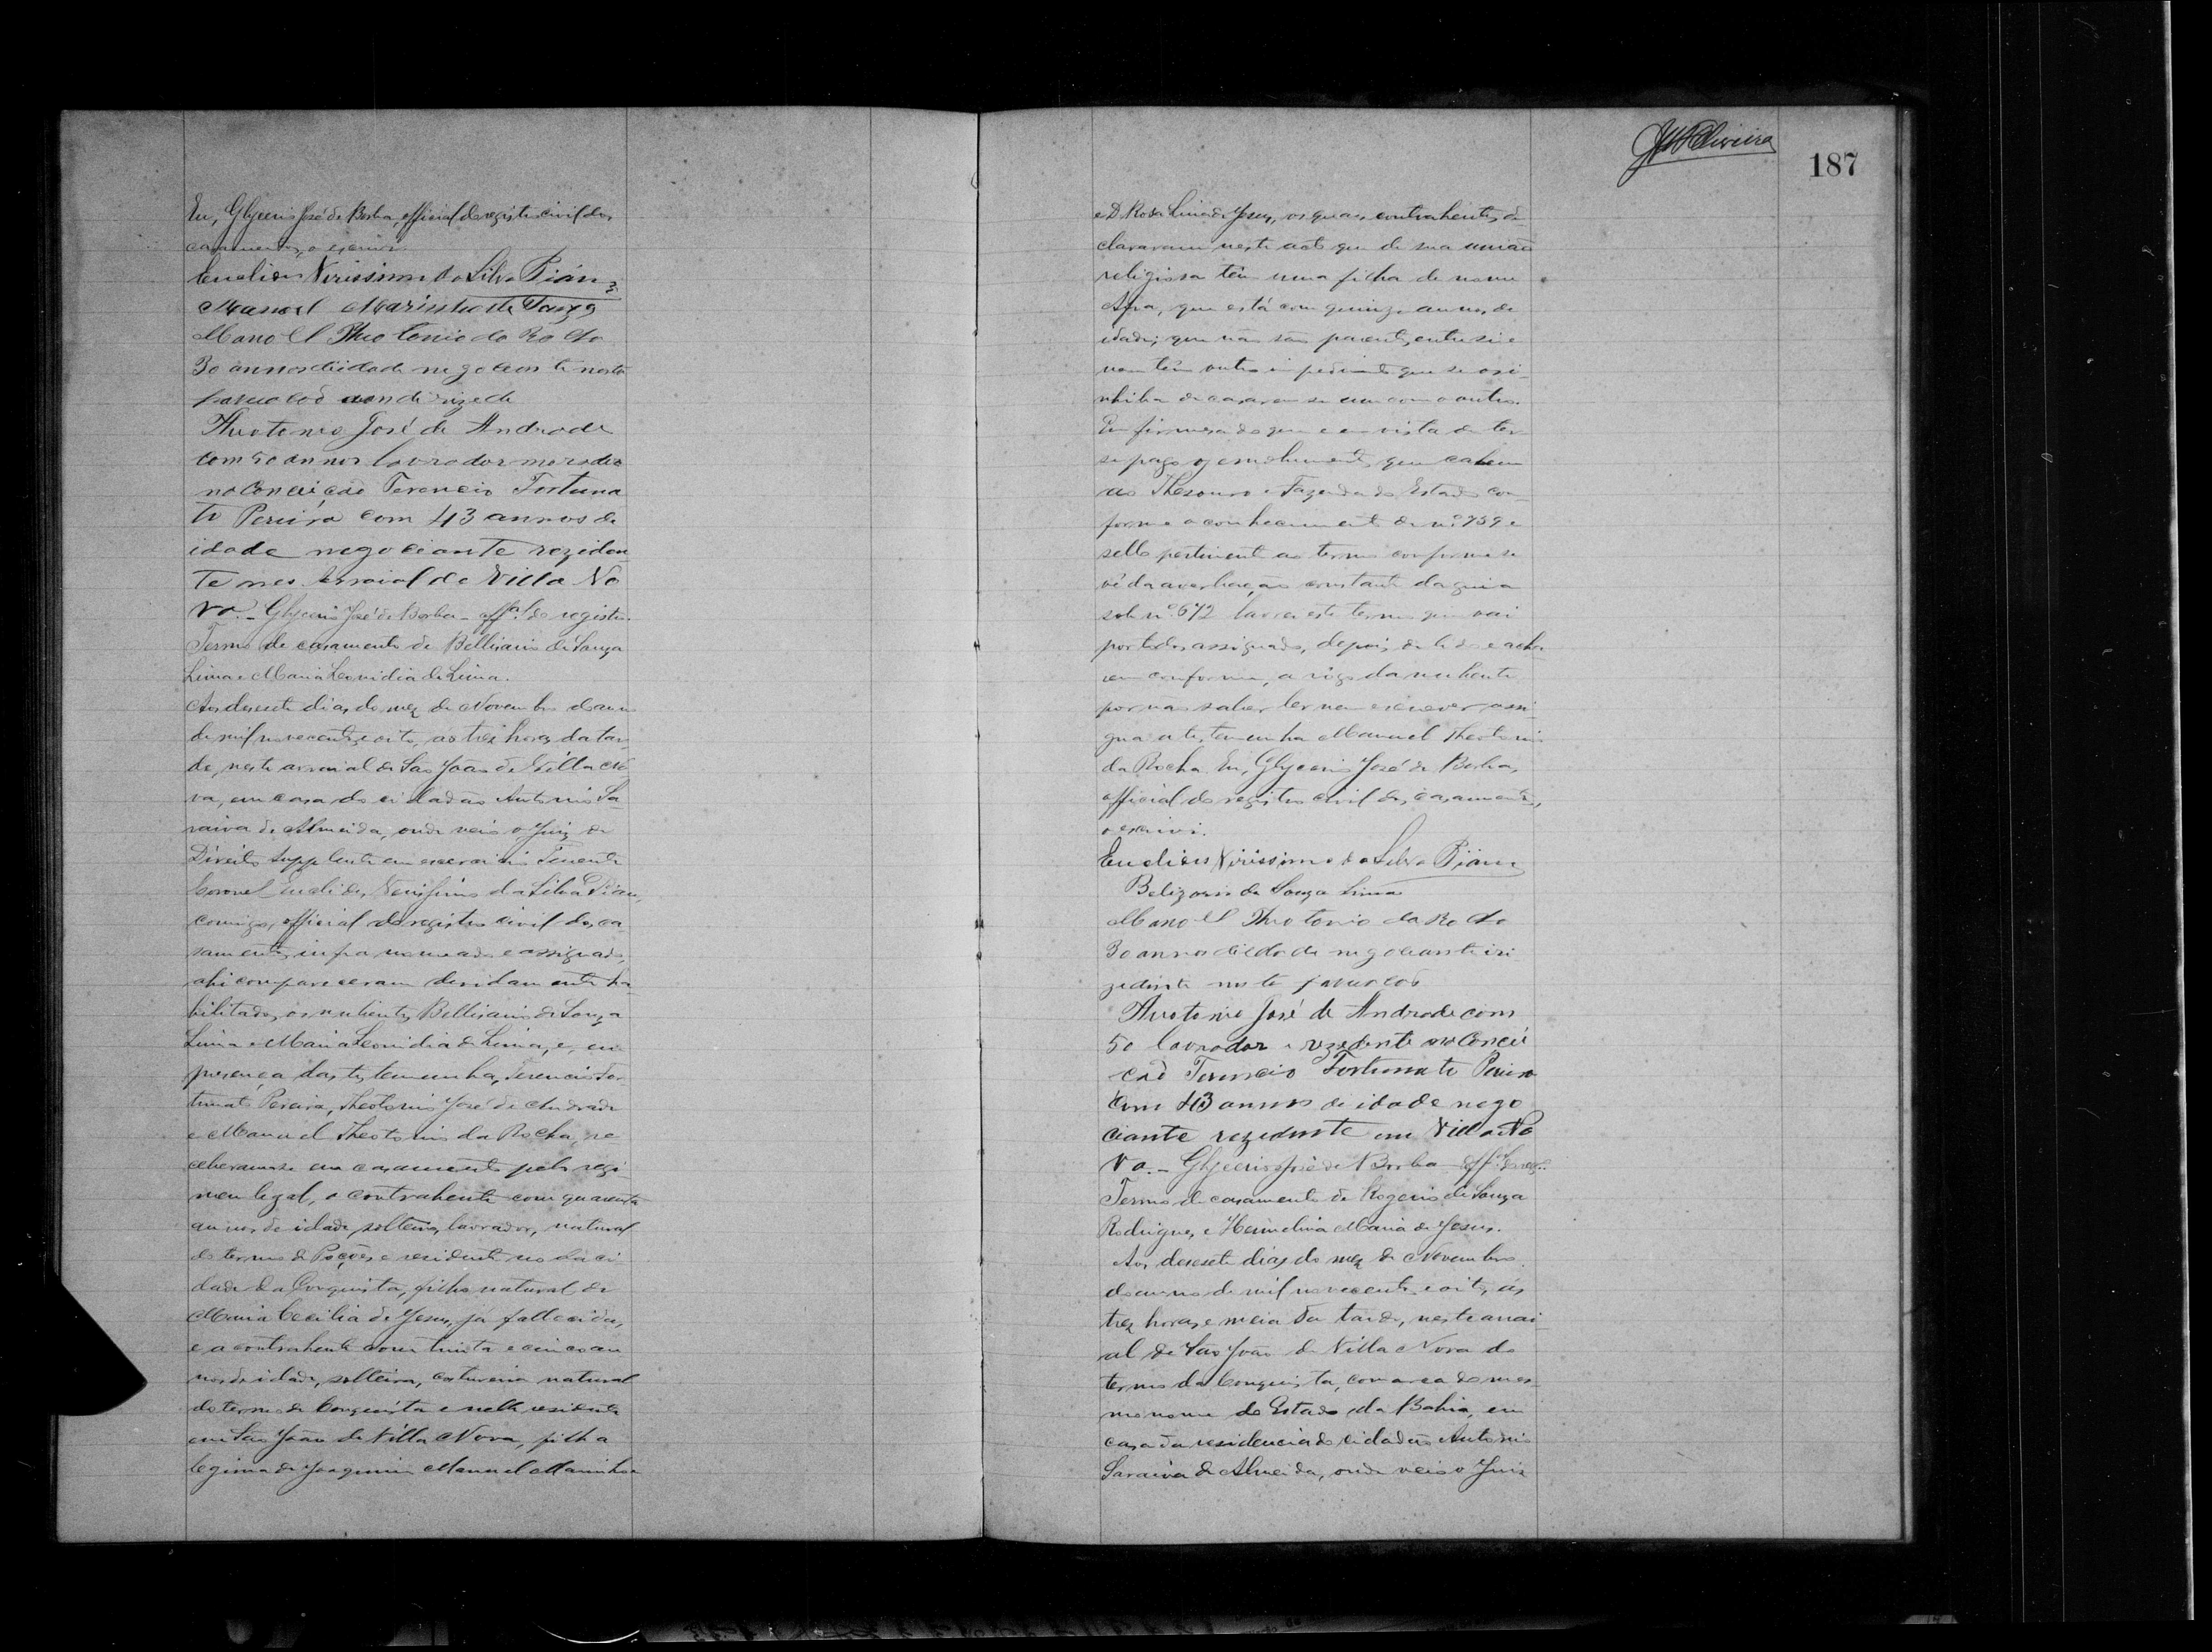 Eu, Glycerio José de Borba, official do registro civil dos
casamentos, o escrivi.
Euclides Virissimo da Silva Pián
Manoel Marinho de Souza
Manoel Theotonio da Rocha
30 annos diidade negociante nesta
Theotonio José de Andrade
com 50 annos lavrador morador
na Conceição Terencio Fortuna
to Pereira com 43 annos de
idade negociante reziden
te nes. Arraial de Villa No
va. - Glycerio José de Borba - offal. do registro.
Termo de casamento de Bellisario de Souza
Lima e Maria Leonidia de Lima.
Aos desesete dias do mez de Novembro do anno
de mil novecentos e oito, as tres horas da tar-
de, neste arraial de São João de Villa No
va, em casa do cidadão Antonio Sa-
raiva de Almeida, onde veio o Juiz de
Direito supplente em exercicio Tenente
Coronel Euclides Verissimo da Silva Pian,
comigo, official do registro civil dos ca-
samentos, infra nomeado e assignado,
ahi compareceram devidamente ha-
bilitados, os nubentes Bellisario de Souza
Lima e Maria Leonidia de Lima, e, em
presença das testemunhas, Terencio For
tunato Pereira, Theotonio José de Andrade
e Manuel Theotonio da Rocha, re
ceberam-se em casamento pelo regi-
men legal, o contrahente com quarenta
annos de idade, solteiro, lavrador, natural
do termo de Poções e residente no da ci
dade da Conquista, filho natural de
Maria Cecilia de Jesus, já fallecida,
e a contrahente com trinta e cinco an
nos de idade, solteira, costureira natural
do termo de Conquista e nelle residente
em São João de Villa Nova, filha
legima de Joaquim Manuel Marinho

JMOliveira
187
e D. Rosa Lina de Jesus, os quaes contrahentes, de
clararam neste acto que de sua união
religiosa têm uma filha de nome
Afra, que está com quinze annos de
idade; que não são parentes, entre si e
nem têm outro impedimento que se os i-
nhiba de casarem-se um com o outro.
Em firmesa do que e em vista de ter
se pago os emolumentos que cabem
ao Thesouro e Fazenda do Estado con
forme o conhecimento de nº 759 e
sello pertinente ao termo conforme se
vê da averbação constante da guia
sob nº 672 lavrei este termo que vai
por todos assignado, depois de lido e acha
rem conforme, a rogo da nubente
por não saber ler nem escrever, assi-
gna a testemunha Manuel Theotonio
da Rocha. Eu, Glycerio José de Borba,
official do registro civil dos casamentos,
o escrivi.
Euclides Virissimo da Silva Pián
Belizario de Souza Lima
Manoel Theotonio da Rocha
30 annos diidade negociante iri
zidente neste
Theotonio José de Andrade com
50 lavrador e rezedente na Concei
cão Terencio Fortunato Pereira
com 43 annos de idade nego
ciante rezedente em Villa No
va. - Glycerio José de Borba - offal. do reg..
Termo de casamento de Rogerio de Souza
Rodrigues e Hermelina Maria de Jesus.
Aos desesete dias do mez de Novembro
do anno de mil novecentos e oito, ás
tres horas e meia da tarde, neste arrai-
al de São João de Villa Nova do
termo da Conquista, comarca do mes-
mo nome do Estado da Bahia, em
casa da residencia do cidadão Antonio
Saraiva de Almeida, onde veio o Juiz